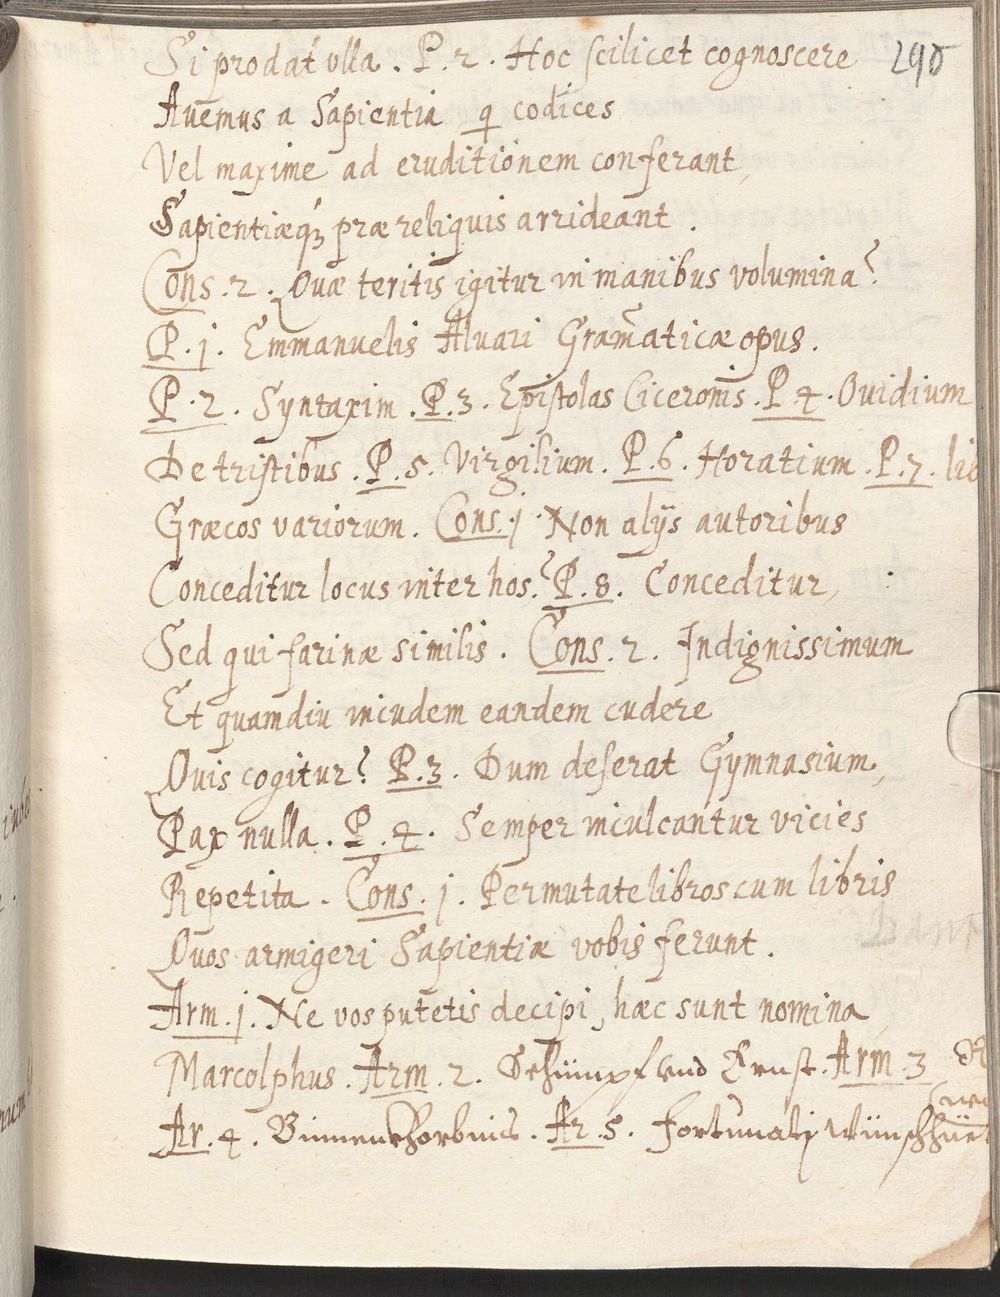 Si prodat ulla . P. 2. Hoc scilicet cognoscere 290
Auemus a Sapientia q codices
Vel maxime ad eruditionem conferant,
Sapientiæq3 præ reliquis arrideant .
Cons. 2. Quæ teritis igitur in manibus volumina?
P. j. Emmanuelis Aluari Gram̄aticæ opus.
P. 2. Syntaxim . P. 3. Epistolas Ciceronis. P 4. Ouidium
De tristibus. P. 5. Virgilium. P. 6. Horatium. P. 7. lib
Græcos variorum. Cons. j Non alijs autoribus
Conceditur locus inter hos? P. 8. Conceditur,
Sed qui farinæ similis . Cons. 2. Indignissimum
Et quamdiu incudem eandem cudere
Quis cogitur? P. 3. Dum deserat Gymnasium,
Pax nulla. P. 4. Semper inculcantur vicies
Repetita . Cons. j. Permutate libros cum libris
Quos armigeri Sapientiæ vobis ferunt.
Arm. j. Ne vos putetis decipi, hæc sunt nomina
Marcolphus. Arm. 2. Schümpf vnd Ernst. Arm. 3
Ar. 4. Binnenkhorbius. Ar. 5. Fortunatj Wünschhüe